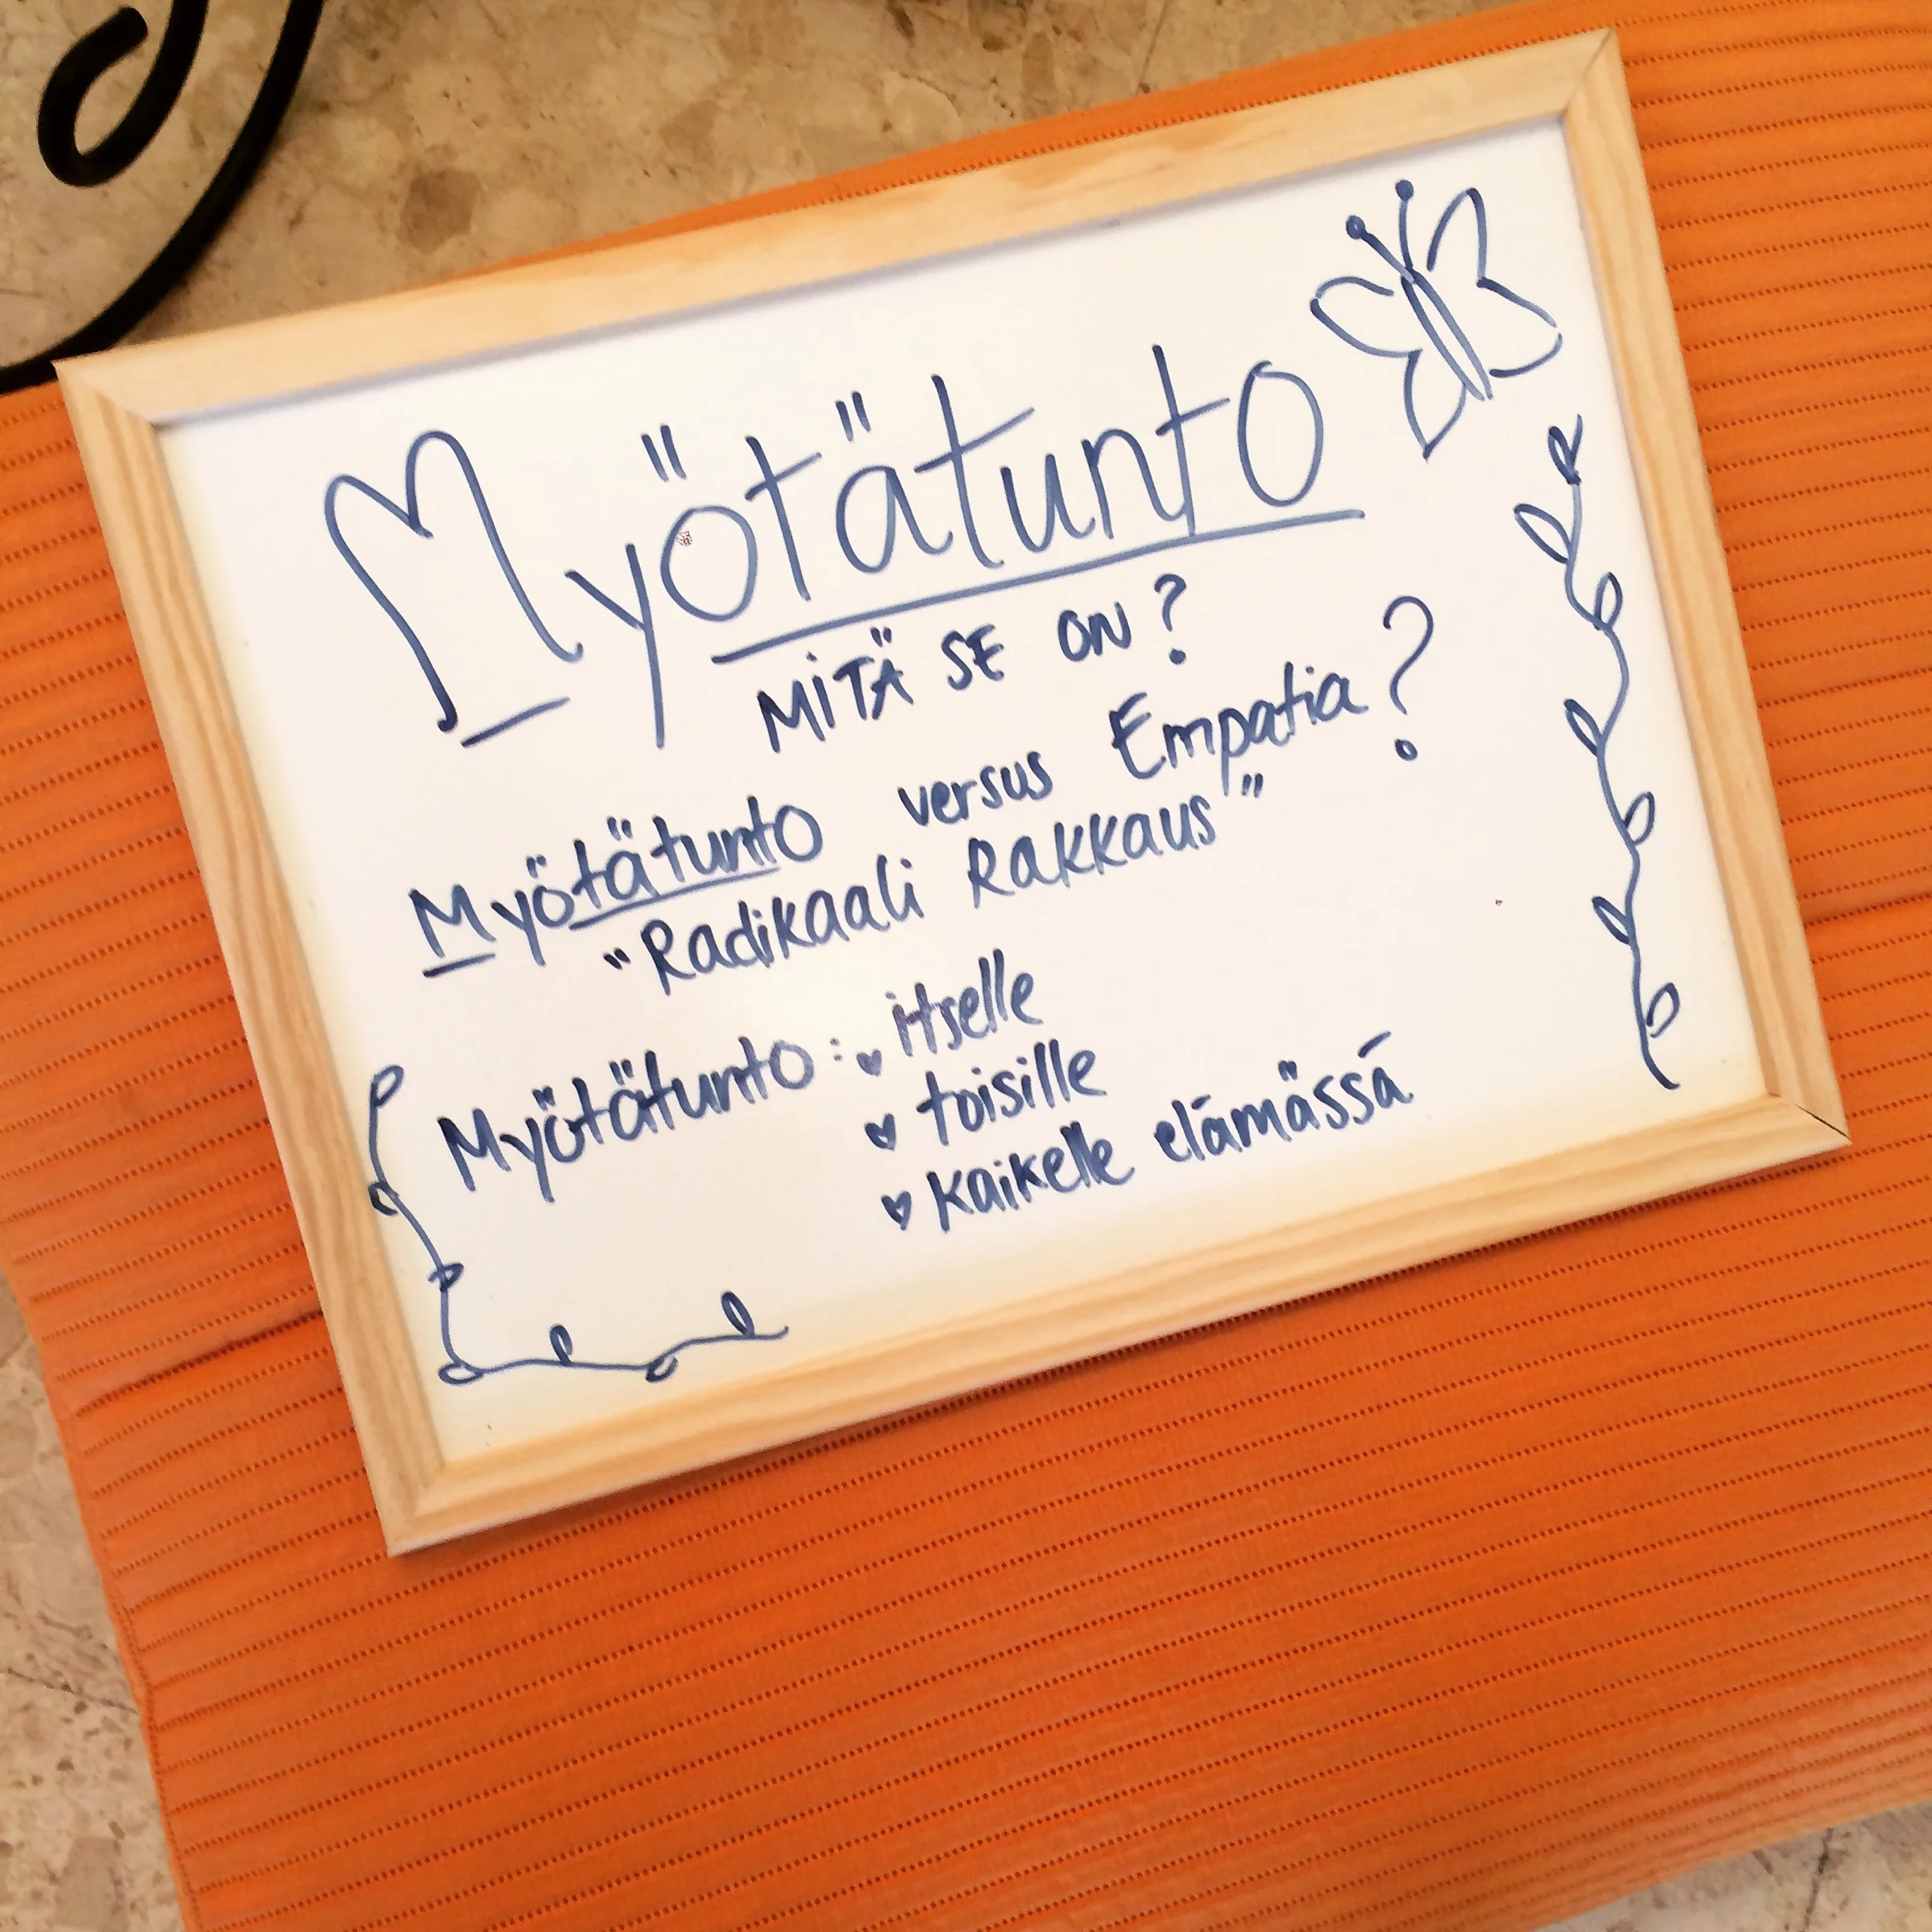 Myötätunto
MITÄ SE ON?
Myötätunto versus Empatia?
"Radikaali Rakkaus"
Myötätunto: ♥ itselle
♥ toisille
♥ kaikelle elämässä